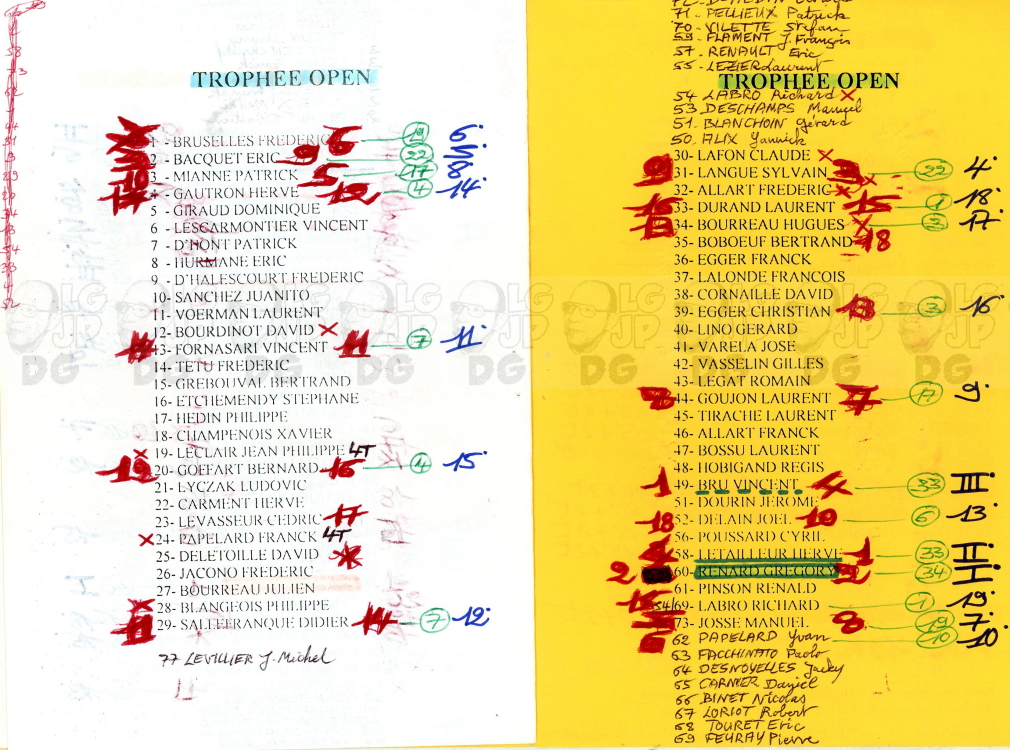 TROPHEE OPEN
1 - BRUSELLES FREDERIC 6 19 6.
2 - BACQUET ERIC 9 22 5.
3 - MIANNE PATRICK 5 17 8
4 - GAUTRON HERVE 12 4 14.
5 - GIRAUD DOMINIQUE
6 - LESCARMONTIER VINCENT
7 - D'HONT PATRICK
8 - HURMANE ERIC
9 - D'HALESCOURT FREDERIC
10- SANCHEZ JUANITO
11- VOERMAN LAURENT
12- BOURDINOT DAVID X
13- FORNASARI VINCENT 11 7 11.
14- TETU FREDERIC
15- GREBOUVAL BERTRAND
16- ETCHEMENDY STEPHANE
17- HEDIN PHILIPPE
18- CHAMPENOIS XAVIER
X 19- LECLAIR JEAN PHILIPPE 4T
19 20- GOEFART BERNARD 16 4 15.
21- LYCZAK LUDOVIC
22- CARMENT HERVE
23- LEVASSEUR CEDRIC 17
X 24- PAPELARD FRANCK 4T
25- DELETOILLE DAVID
26- JACONO FREDERIC
27- BOURREAU JULIEN
X 28- BLANGEOIS PHILIPPE
29- SALLEFRANQUE DIDIER 14 7 12.
77 LEVILLIER J. Michel
71 - PELLIEUX Patrick
70 - VILETTE Stefan
59 - FLAMENT J. François
57 - RENAULT Eric
55 - LEZIER Laurent
TROPHEE OPEN
54 LABRO Richard X
53 DESCHAMPS Manuel
51. BLANCHOIN Gérard
50. ALIX Yannick
30- LAFON CLAUDE X
31- LANGUE SYLVAIN 22 4.
32- ALLART FREDERIC X
16 33- DURAND LAURENT 15 1 18.
34- BOURREAU HUGUES X 2 17.
35- BOBOEUF BERTRAND 18
36- EGGER FRANCK
37- LALONDE FRANCOIS
38- CORNAILLE DAVID
39- EGGER CHRISTIAN 13 3 16.
40- LINO GERARD
41- VARELA JOSE
42- VASSELIN GILLES
43- LEGAT ROMAIN
8 44- GOUJON LAURENT 7 17 9.
45- TIRACHE LAURENT
46- ALLART FRANCK
47- BOSSU LAURENT
48- HOBIGAND REGIS
1 49- BRU VINCENT 4 33 III.
51- DOURIN JEROME
18 52- DELAIN JOEL 10 6 13.
56- POUSSARD CYRIL
58- LETAILLEUR HERVE 1 33 II.
2 60- RENARD GREGORY 2 34 I.
61- PINSON RENALD
54/69- LABRO RICHARD 1 19.
73- JOSSE MANUEL 8 19 7.
62 PAPELARD Yvan 10 10.
63 FACCHINATO Paolo
64 DESNOYELLES Jacky
65 CARNIER Daniel
66 BINET Nicolas
67 LORIOT Robert
68 TOURET Eric
69 FEURAY Pierre
LG
JP
DG